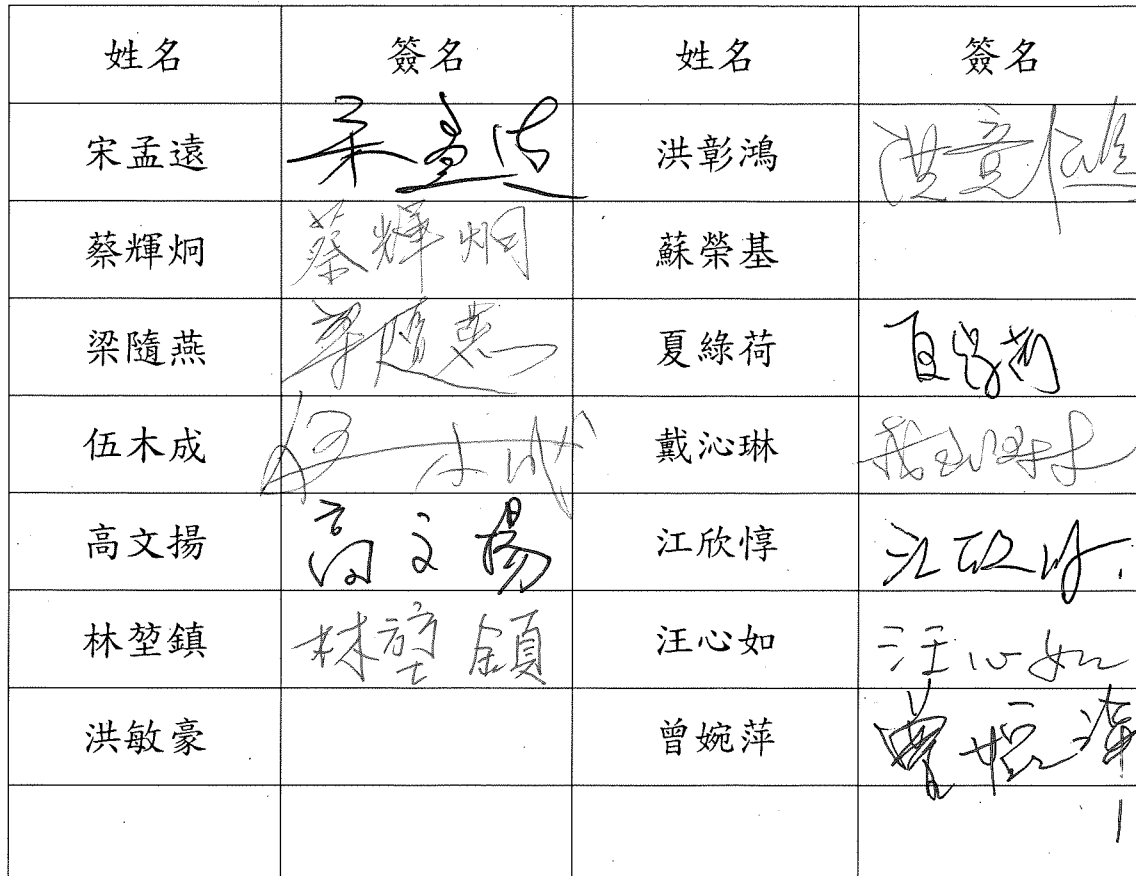 姓名 簽名 姓名 簽名
宋孟遠 宋孟遠 洪彰鴻 洪彰鴻
蔡輝炯 蔡輝炯 蘇榮基
梁隨燕 梁隨燕 夏綠荷 夏綠荷
伍木成 伍木成 戴沁琳
高文揚 高文揚 江欣惇 江欣惇
林堃鎮 林堃鎮 汪心如 汪心如
洪敏豪 曾婉萍 曾婉萍